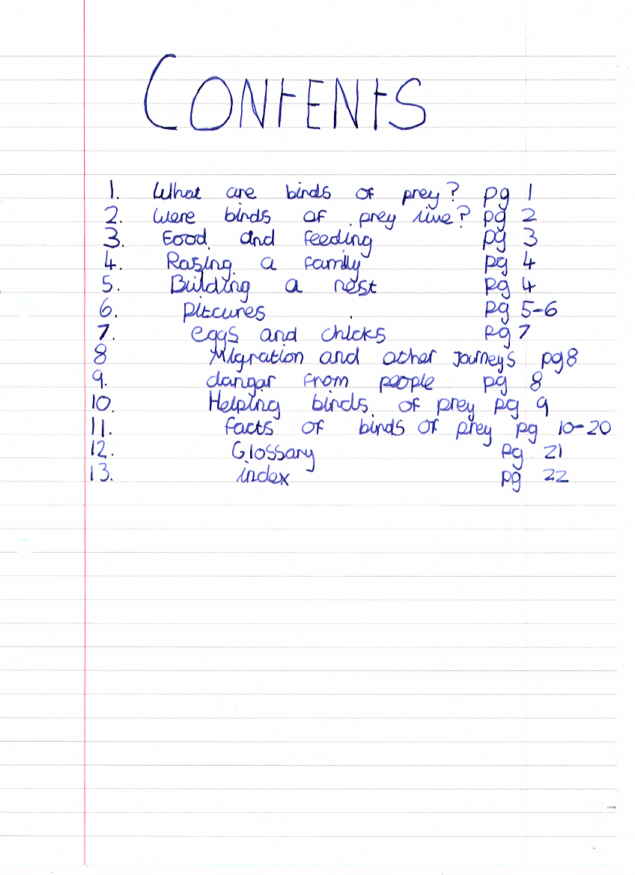 CONTENTS
1. What are birds of prey? pg 1
2. Were birds of prey live? pg 2
3. Food and feeding pg 3
4. Rasing a family pg 4
5. Building a nest pg 4
6. pitcures pg 5-6
7. eggs and chicks pg 7
8 Migration and other Journeys pg 8
9. dangar from people pg 8
10. Helping birds of prey pg 9
11. facts of birds of prey pg 10-20
12. Glossary pg 21
13. index pg 22